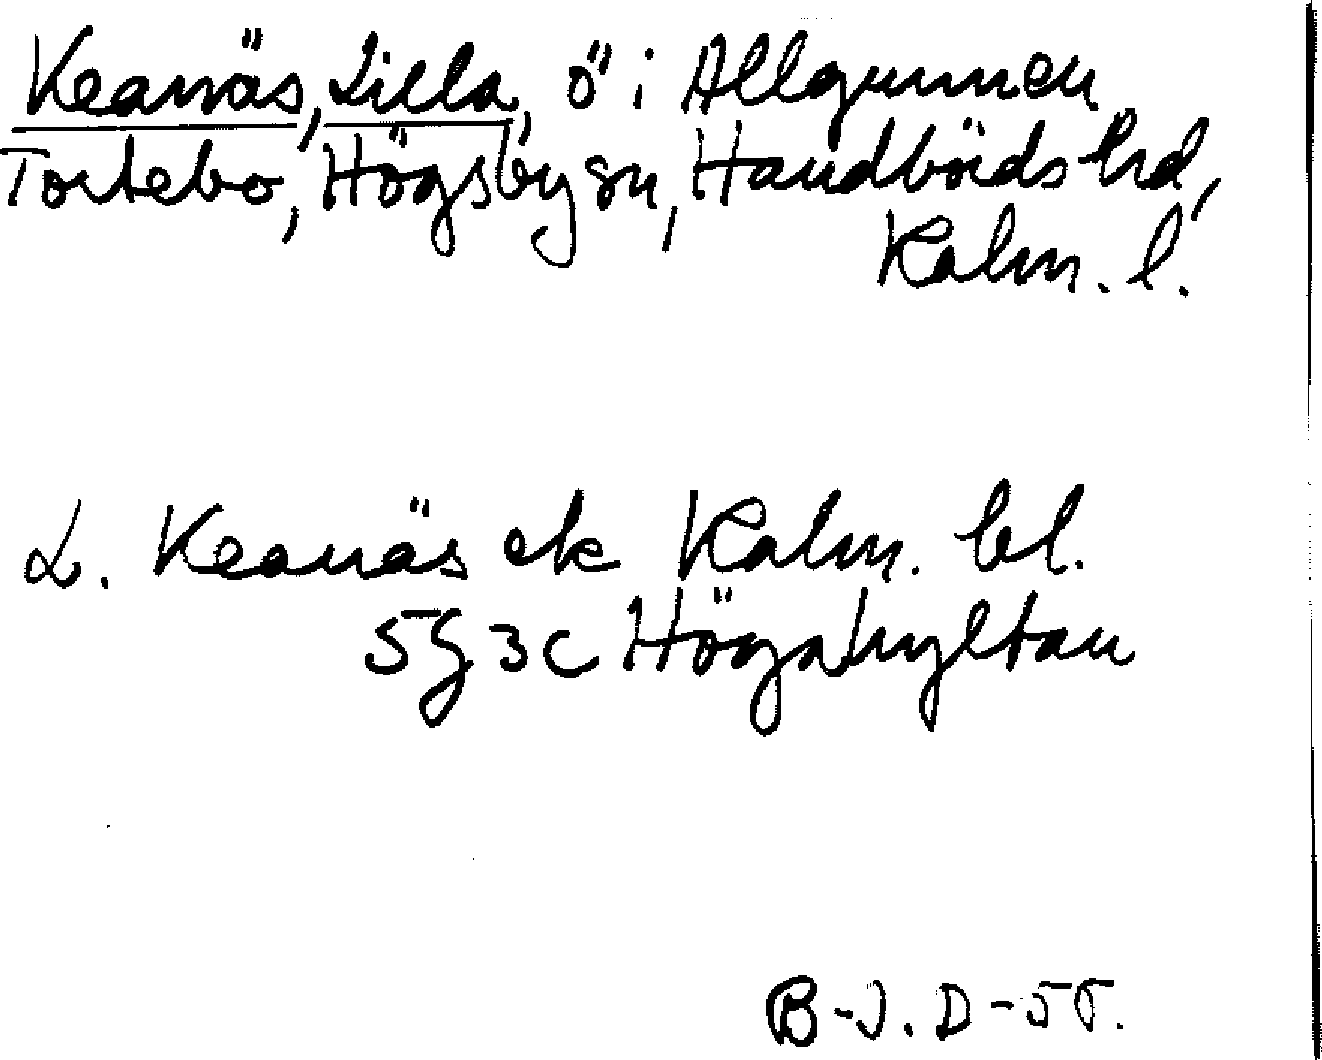 Keanäs, Lilla, ö i Allgunnen
Tortebo, Högsby sn, Handbörds hd,
Kalm. l.
L. Keanäs ek Kalm. bl.
5G 3c Högahyltan
B-J. D-55.